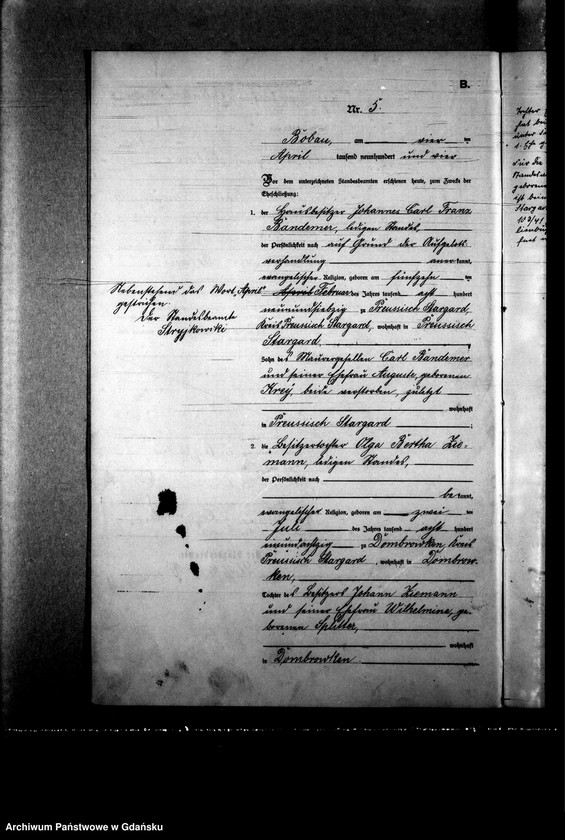 B.
Nr. 5.
Bobau, am vier ten
April tausend neunhundert und vier
Vor dem unterzeichneten Standesbeamten erschienen heute, zum Zwecke der
Eheschließung:
1. der Hausbesitzer Johannes Carl Franz
Bandemer, ledigen Standes,
der Persönlichkeit nach auf Grund der Aufgebots-
verhandlung anerkannt,
evangelischer Religion, geboren am fünfzehn ten
April Februar des Jahres tausend acht hundert
neunundsiebzig zu Preussisch Stargard,
Kreis Preussisch Stargard, wohnhaft in Preussisch
Stargard,
Sohn des Maurergesellen Carl Bandemer
und seiner Ehefrau Auguste, geborenen
Krey, beide verstorben, zuletzt
wohnhaft
in Preussisch Stargard ;
2. die Besitzertochter Olga Bertha Zie-
mann, ledigen Standes,
der Persönlichkeit nach
bekannt,
evangelischer Religion, geboren am zwei ten
Juli des Jahres tausend acht hundert
neunundachtzig zu Dombrowken, Kreis
Preussisch Stargard, wohnhaft in Dombrow-
ken,
Tochter des Besitzers Johann Ziemann
und seiner Ehefrau Wilhelmine, ge-
borenen Splitter,
wohnhaft
in Dombrowken.
Nebenstehend das Wort „April“
gestrichen.
Der Standesbeamte
Stryjkowski
Archiwum Państwowe w Gdańsku